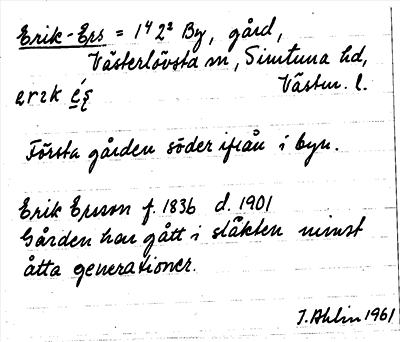 Erik-Ers = 1⁴ 2² By, gård,
Västerlövsta sn, Simtuna hd,
Västm. l.
erik és
Första gården söder ifrån i byn.
Erik Ersson f. 1836 d. 1901
Gården har gått i släkten minst
åtta generationer.
J. Ahlin 1961